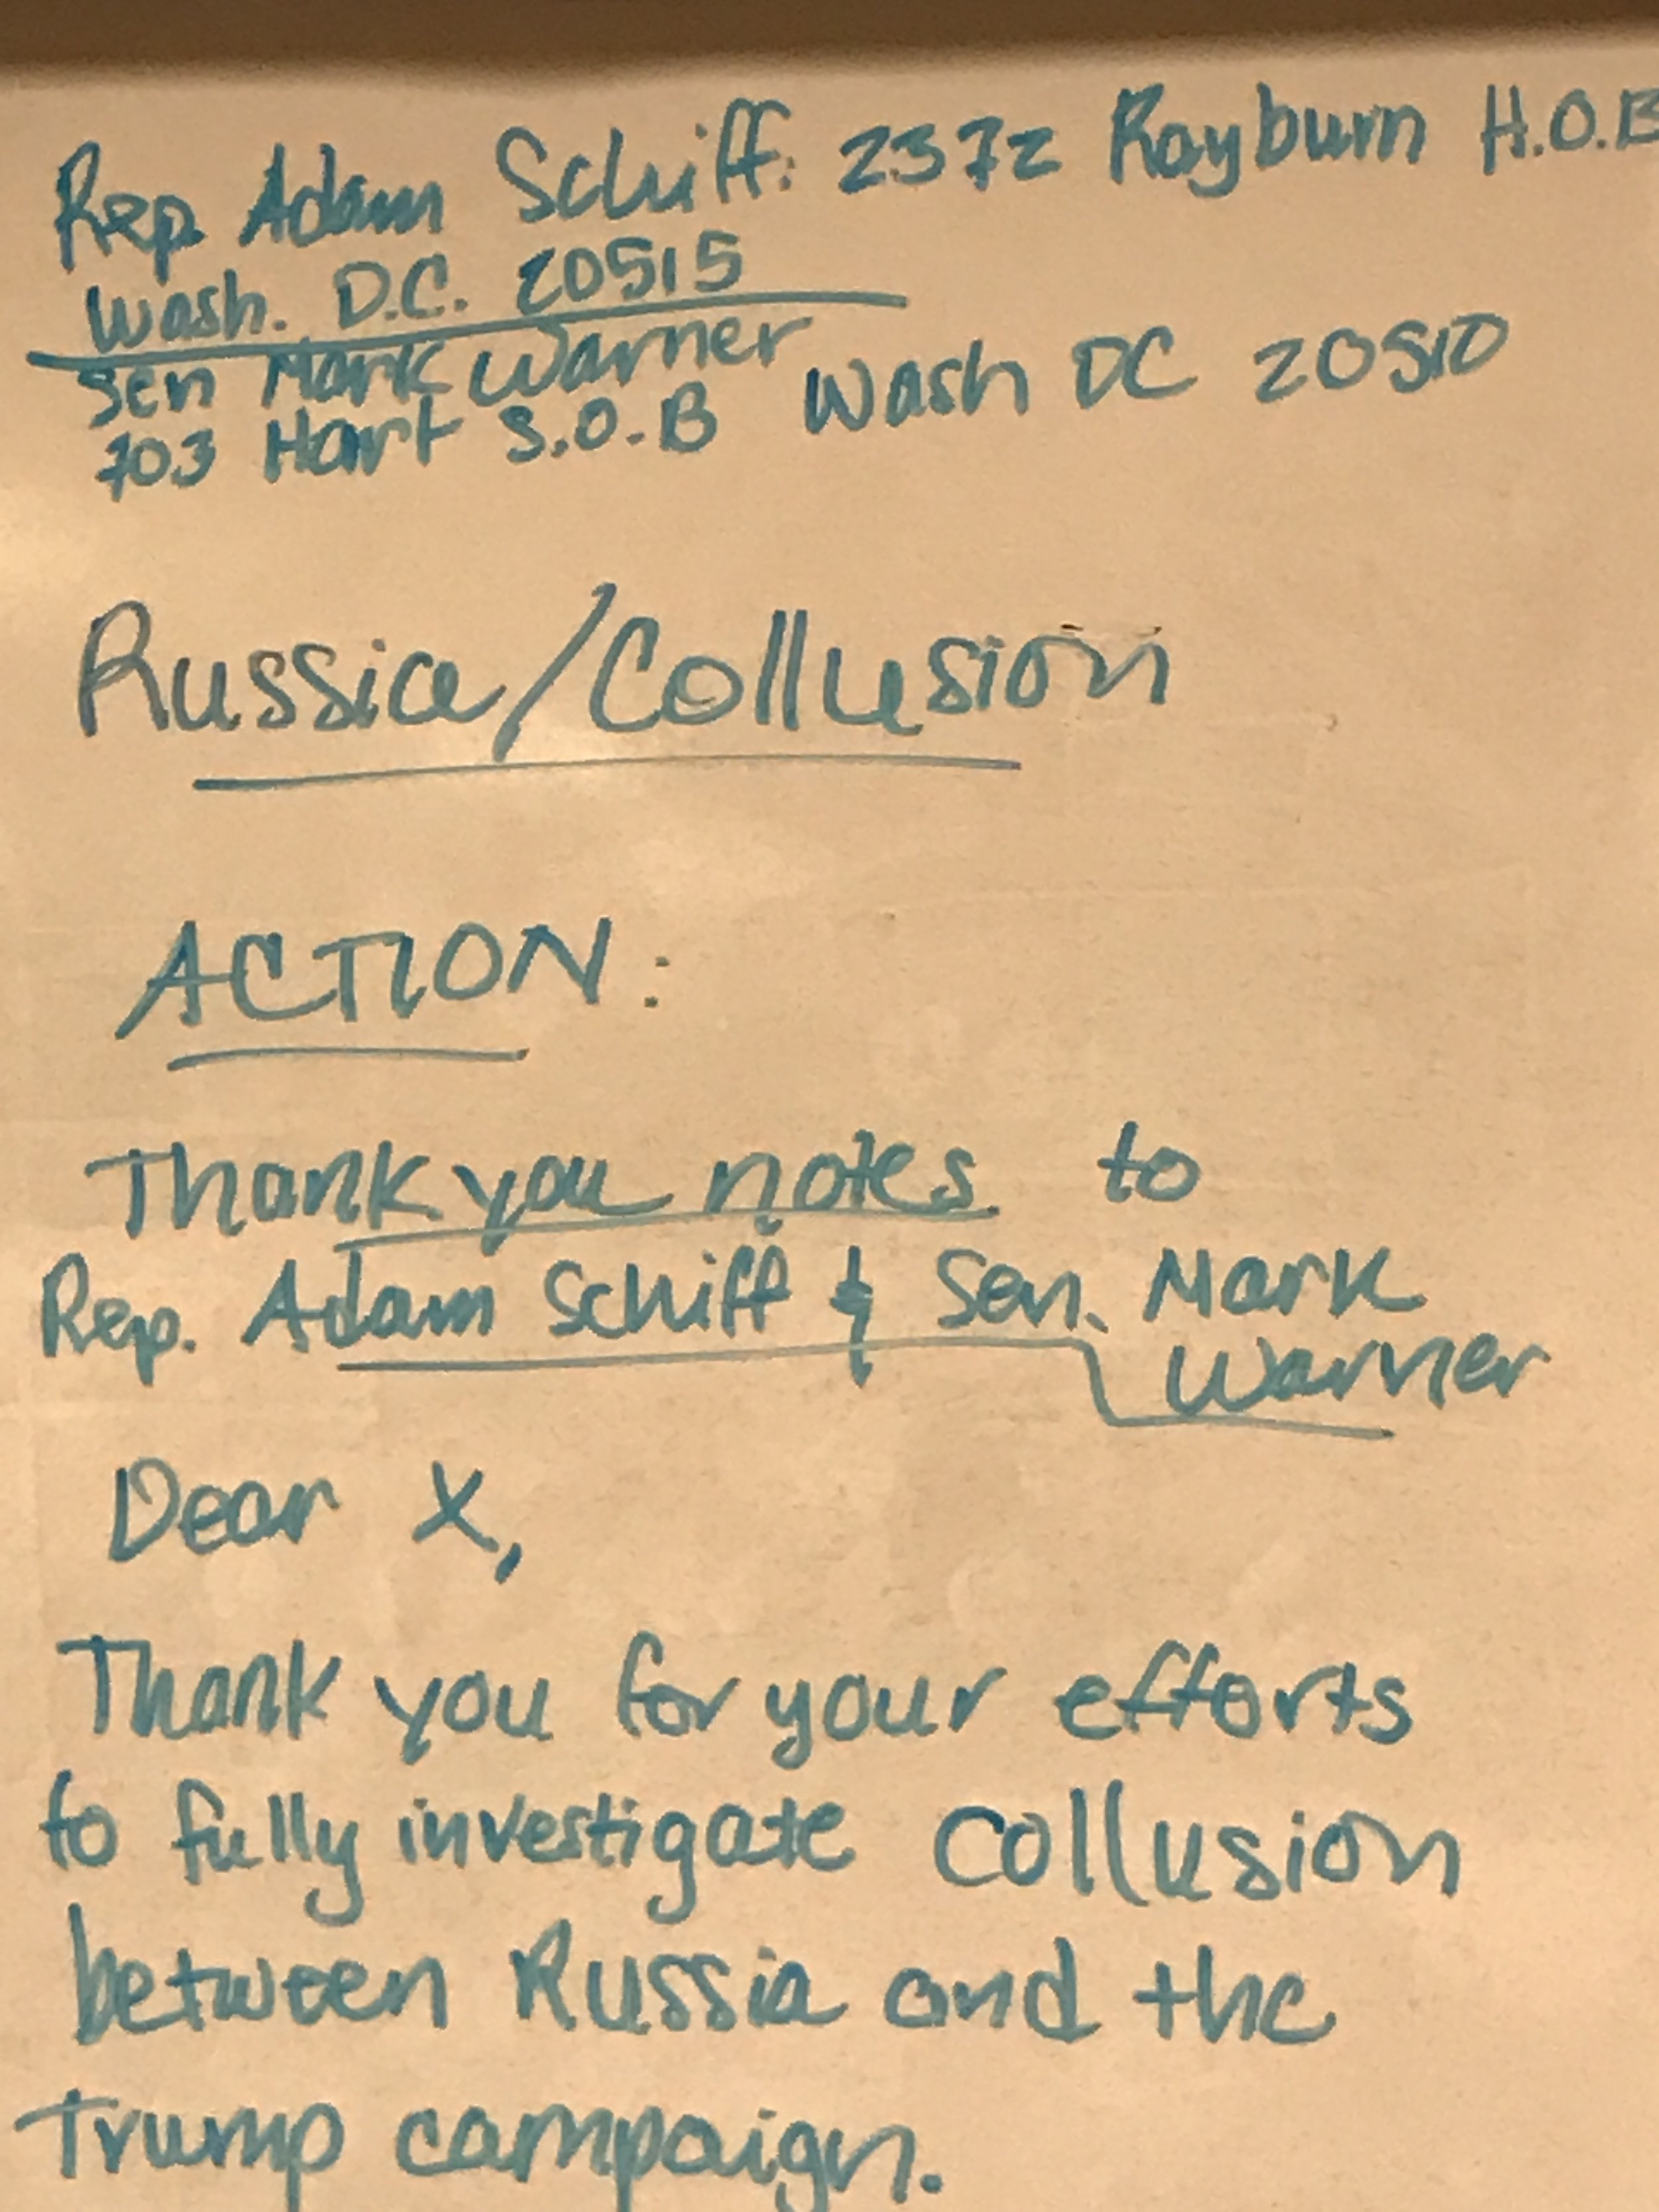 Rep. Adam Schiff: 2372 Rayburn H.O.B
Wash. D.C. 20515
Sen Mark Warner
703 Hart S.O.B Wash DC 20510
Russia/Collusion
ACTION:
Thank you notes to
Rep. Adam Schiff & Sen. Mark
Warner
Dear X,
Thank you for your efforts
to fully investigate collusion
between Russia and the
Trump campaign.